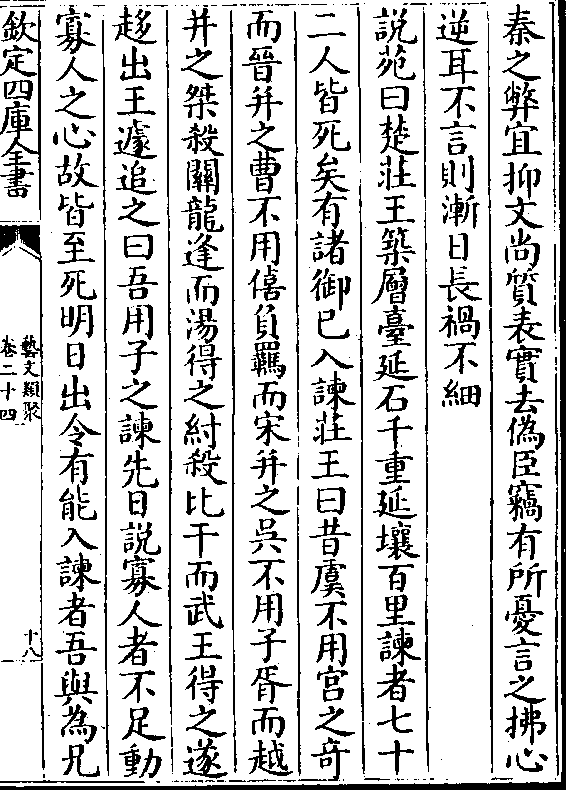 秦之弊宜抑文尚質表實去偽臣竊有所憂言之拂心
逆耳不言則漸日長禍不細
說苑曰楚莊王築層臺延石千重延壤百里諫者七十
二人皆死矣有諸御已入諫莊王曰昔虞不用宮之竒
而晉并之曹不用僖負羈而宋并之吳不用子胥而越
并之桀殺關龍逢而湯得之紂殺比干而武王得之遂
趍出王遽追之曰吾用子之諫先日説寡人者不足動
寡人之心故皆至死明日出令有能入諫者吾與為兄
欽定四庫全書
藝文類聚
卷二十四
十八